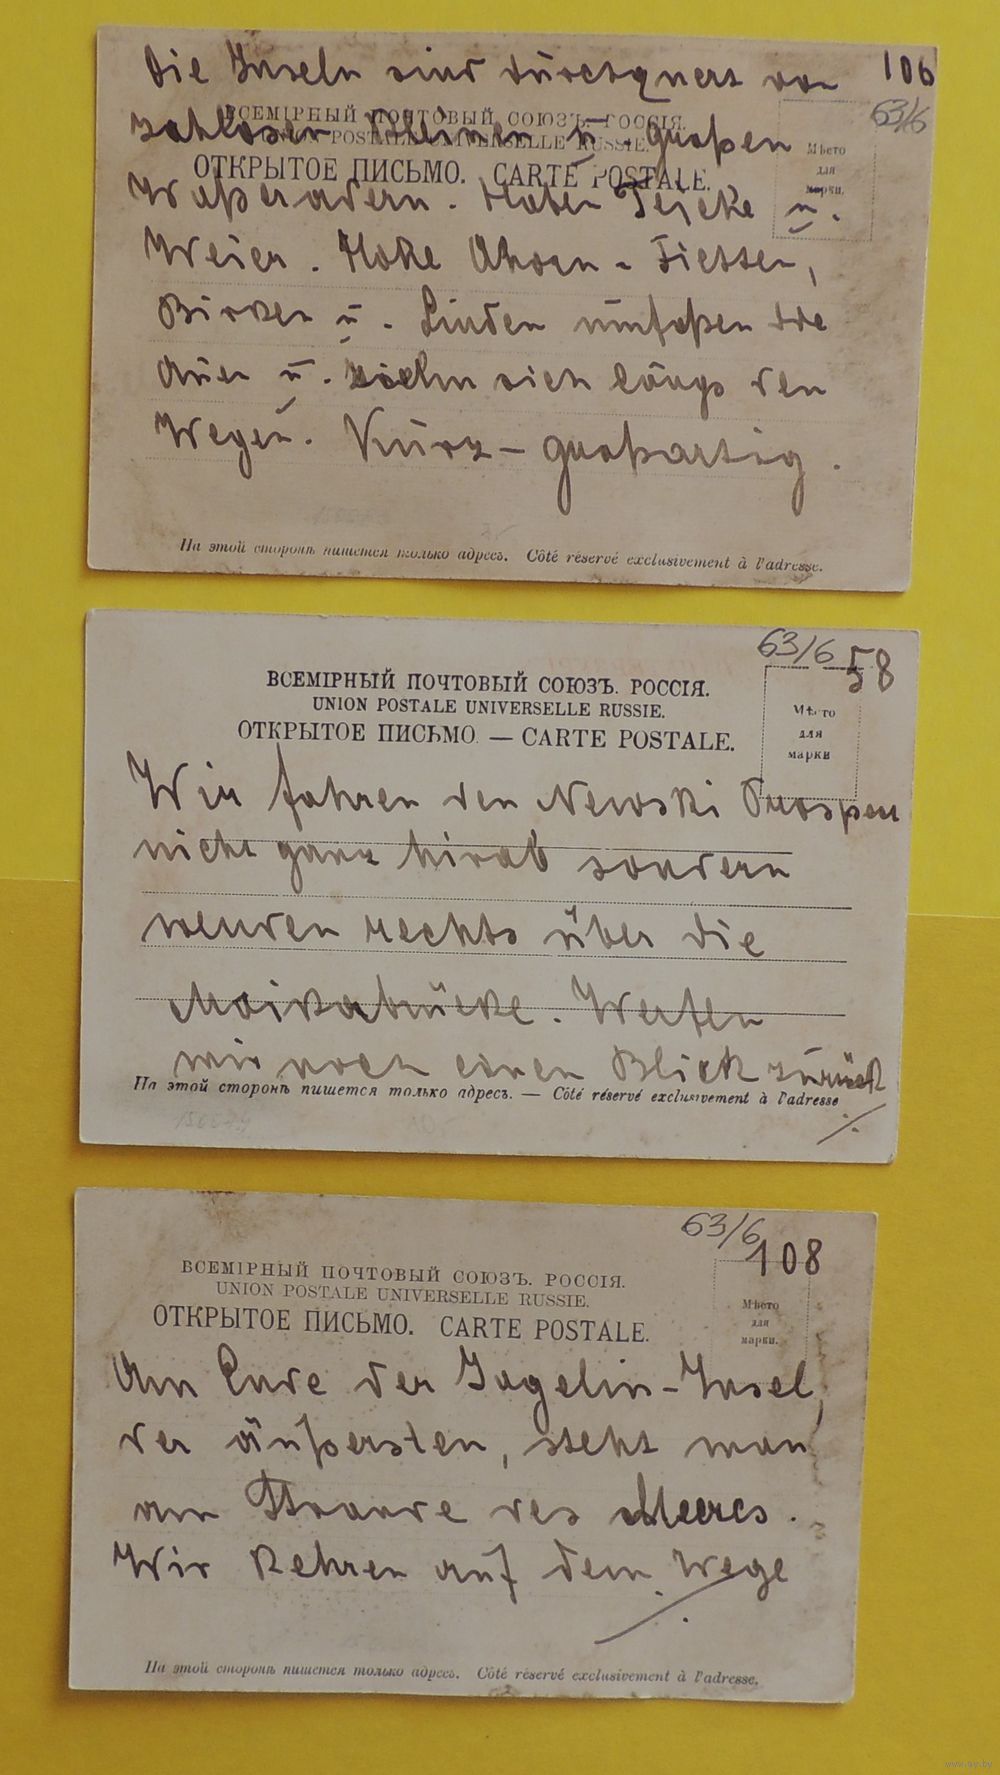 Die Inseln sind durchquert von
106
63/6
ВСЕМІРНЫЙ ПОЧТОВЫЙ СОЮЗЪ. РОССІЯ.
zahllosen kleinen u. großen
UNION POSTALE UNIVERSELLE RUSSIE.
Мѣсто
для
марки.
ОТКРЫТОЕ ПИСЬМО. CARTE POSTALE.
Waßeradern. Haben Teiche u.
Weier. Hohe Ahorn-Fichten,
Birken u. Linden umfaßen die
Auen u. ziehn sich längs den
Wegen. Kurz – großartig.
На этой сторонѣ пишется только адресъ. Côté réservé exclusivement à l'adresse.
63/6
58
ВСЕМІРНЫЙ ПОЧТОВЫЙ СОЮЗЪ. РОССІЯ.
UNION POSTALE UNIVERSELLE RUSSIE.
ОТКРЫТОЕ ПИСЬМО. — CARTE POSTALE.
Мѣсто
для
марки
Wir fahren den Newski Prospect
nicht ganz hinab sondern
wenden rechts über die
Moikabrücke. Werfen
wir noch einen Blick zurück
На этой сторонѣ пишется только адресъ. — Côté réservé exclusivement à l'adresse
./.
63/6
108
ВСЕМІРНЫЙ ПОЧТОВЫЙ СОЮЗЪ. РОССІЯ.
UNION POSTALE UNIVERSELLE RUSSIE.
ОТКРЫТОЕ ПИСЬМО. CARTE POSTALE.
Мѣсто
для
марки.
Am Ende der Jagelin-Insel,
der äußersten, steht man
am Strande des Meeres.
Wir kehren auf dem Wege
./.
На этой сторонѣ пишется только адресъ. Côté réservé exclusivement à l'adresse.